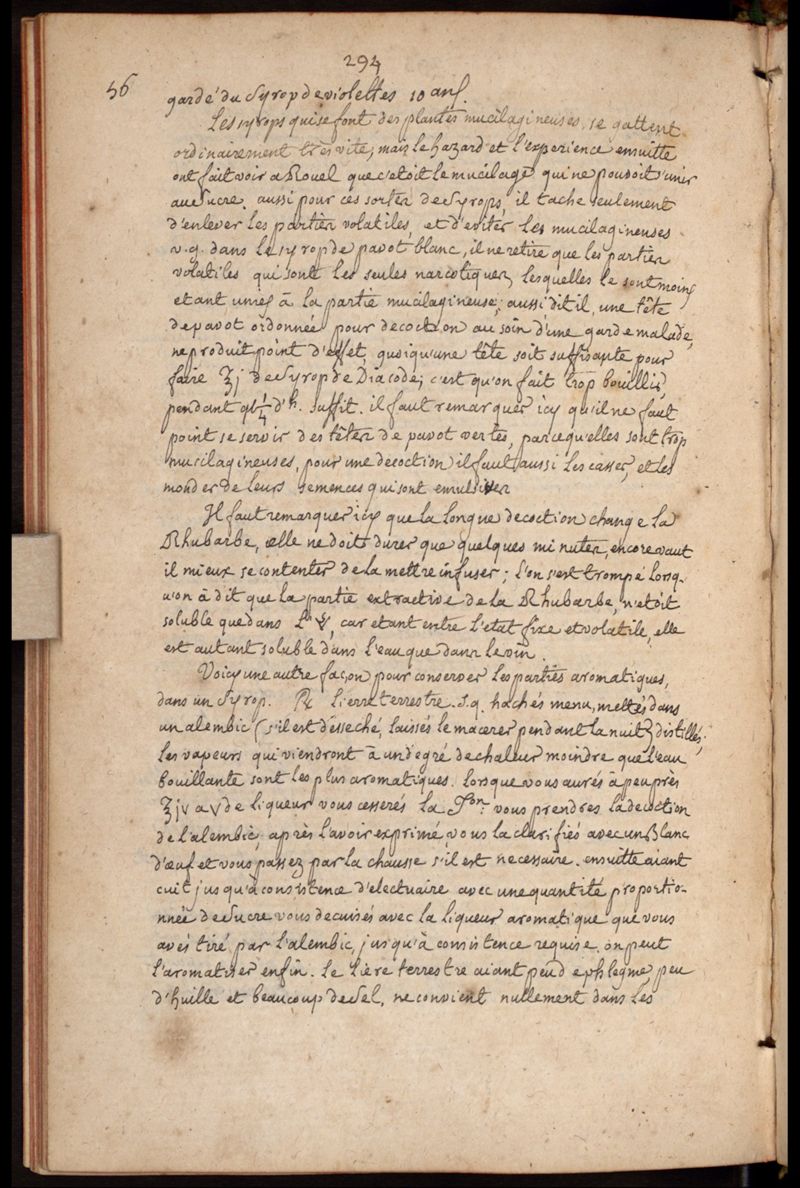 294
56
gardé du Syrop de violettes 10 ans.
Les syrops qui se font des plantes mucilagineuses, se gattent
ordinairement tres vite, mais le hazard et l'experience ensuitte
ont fait voir a Rouel que c'etoit le mucilage qui ne pouvoit s'unir
au sucre. aussi pour ces sortes de Syrops, il tache seulement
d'enlever les parties volatiles, et d'eviter les mucilagineuses
v.g. dans le syrop de pavot blanc, il ne retire que les parties
volatiles qui sont les seules narcotiques, lesquelles le sont moins
etant unies à la partie mucilagineuse; aussi dit il, une tête
de pavot ordonnée pour decoction au soin d'une garde malade,
ne produit point d'effet, quoiqu'une tête soit suffisante pour
faire ℥j de Syrop de Diacode; c'est qu'on fait trop bouillir,
pendant 1/4 d'h. suffit. il faut remarquer icy qu'il ne faut
point se servir des têtes de pavot vertes, parcequ'elles sont trop
mucilagineuses, pour une decoction il faut aussi les casser, et les
monder de leurs semences qui sont emulsives
Il faut remarquer icy que la longue decoction change la
Rhubarbe, elle ne doit durer que quelques minutes, encore vaut
il mieux se contenter de la mettre infuser; l'on s'est trompé lorsq-
u'on à dit que la partie extractive de la Rhubarbe, n'etoit
soluble que dans l' , car etant entre l'etat fixe et volatile, elle
est autant soluble dans l'eau que dans le vin.
Voicy une autre façon pour conserver les parties aromatiques,
dans un Syrop. ℞ lierre terrestre s.q. hachés menu, mettés dans
un alembic (s'il est desseché, laissés le macerer pendant la nuit) distillés.
les vapeurs qui viendront à un degré de chaleur moindre que l'eau
bouillante sont les plus aromatiques. lorsque vous aurés à peu près
℥iv a v de liqueur vous cesserés la . vous prendres la decoction
de l'alembic, après l'avoir exprimé, vous la clarifiés avec un Blanc
d'œuf et vous passez par la chausse s'il est necessaire. ensuitte aiant
cuit jusqu'à consistence d'electuaire avec une quantité proportio-
nnée de sucre vous decuisés avec la liqueur aromatique que vous
avés tiré par l'alembic, jusqu'à consistence requise. on peut
l'aromatiser enfin. Le Liere terrestre aiant peu d'ephlegme, peu
d'huille et beaucoup de sel, ne convient nullement dans les